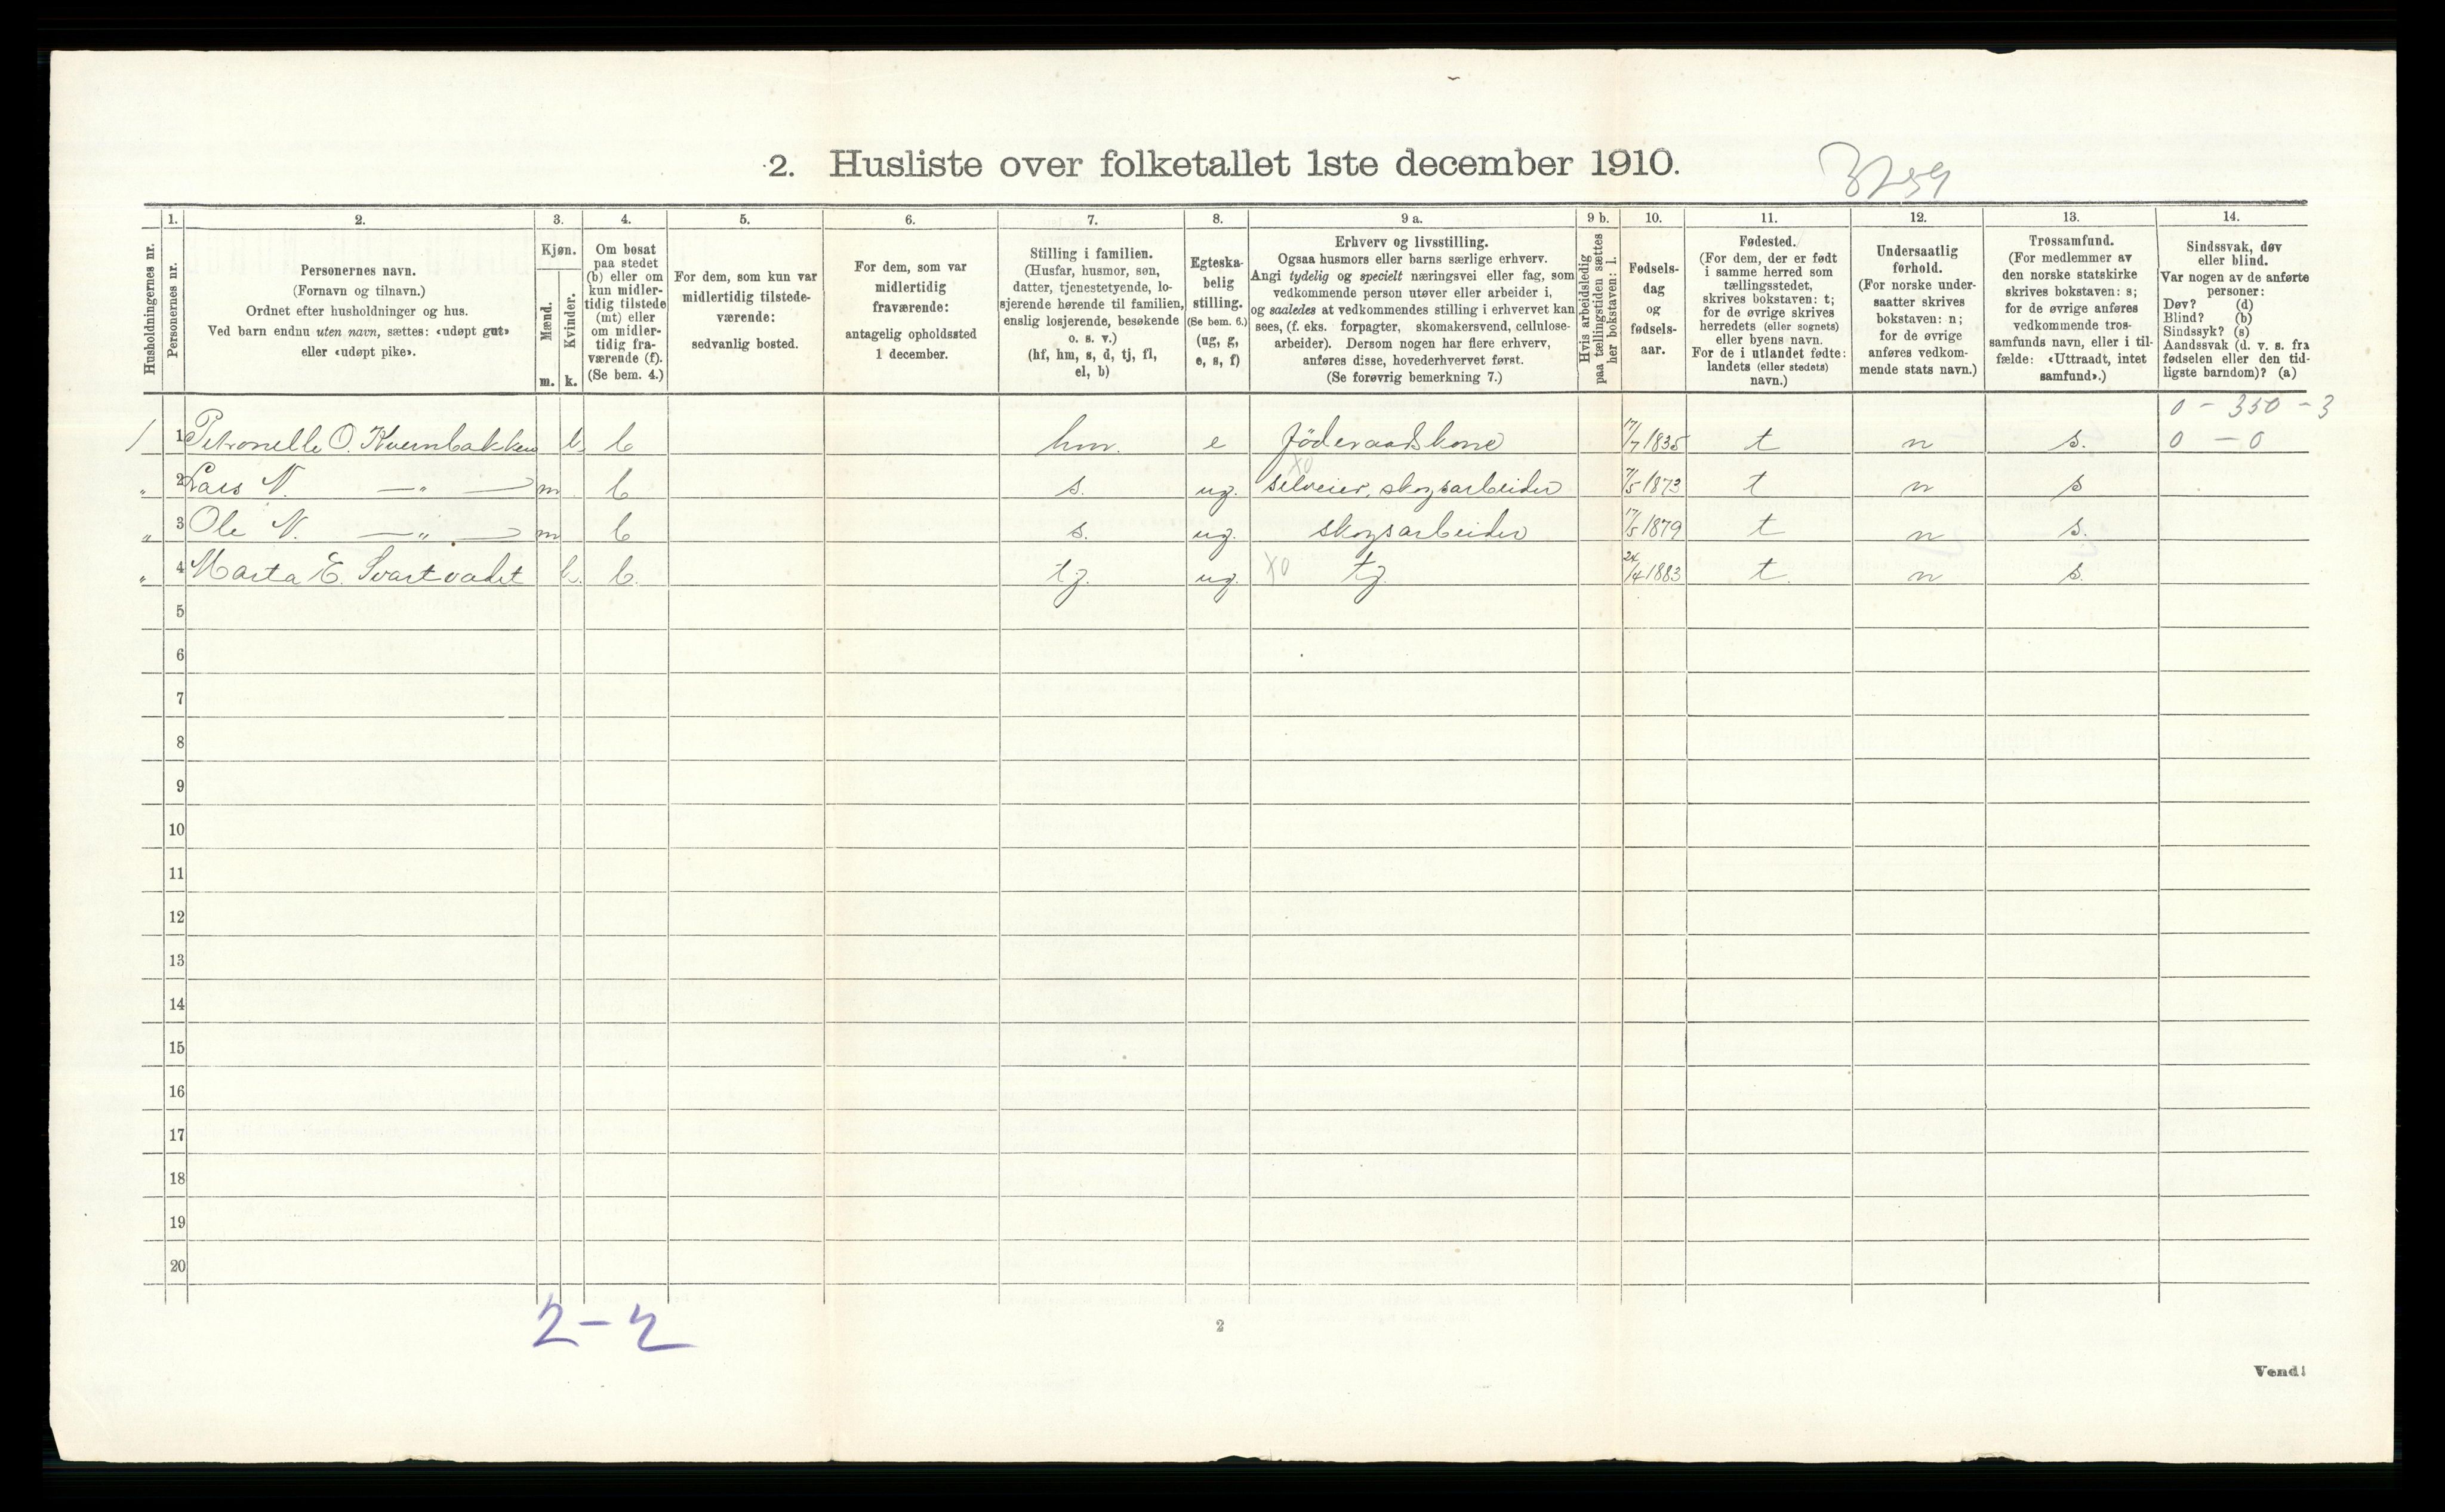 2. Husliste over folketallet 1ste december 1910.
3259
Husholdningernes nr.
1.
Personernes nr.
2.
Personernes navn.
(Fornavn og tilnavn.)
Ordnet efter husholdninger og hus.
Ved barn endnu uten navn, sættes: «udøpt gut»
eller «udøpt pike».
3.
Kjøn.
Mænd.
Kvinder.
m. k.
4.
Om bosat
paa stedet
(b) eller om
kun midler-
tidig tilstede
(mt) eller
om midler-
tidig fra-
værende (f).
(Se bem. 4.)
5.
For dem, som kun var
midlertidig tilstede-
værende:
sedvanlig bosted.
6.
For dem, som var
midlertidig
fraværende:
antagelig opholdssted
1 december.
7.
Stilling i familien.
(Husfar, husmor, søn,
datter, tjenestetyende, lo-
sjerende hørende til familien,
enslig losjerende, besøkende
o. s. v.)
(hf, hm, s, d, tj, fl,
el, b)
8.
Egteska-
belig
stilling.
(Se bem. 6.)
(ug, g,
e, s, f)
9 a.
Erhverv og livsstilling.
Ogsaa husmors eller barns særlige erhverv.
Angi tydelig og specielt næringsvei eller fag, som
vedkommende person utøver eller arbeider i,
og saaledes at vedkommendes stilling i erhvervet kan
sees, (f. eks. forpagter, skomakersvend, cellulose-
arbeider). Dersom nogen har flere erhverv,
anføres disse, hovederhvervet først.
(Se forøvrig bemerkning 7.)
9 b.
Hvis arbeidsledig
paa tællingstiden sættes
her bokstaven: l.
10.
Fødsels-
dag
og
fødsels-
aar.
11.
Fødested.
(For dem, der er født
i samme herred som
tællingsstedet,
skrives bokstaven: t;
for de øvrige skrives
herredets (eller sognets)
eller byens navn.
For de i utlandet fødte:
landets (eller stedets)
navn.)
12.
Undersaatlig
forhold.
(For norske under-
saatter skrives
bokstaven: n;
for de øvrige
anføres vedkom-
mende stats navn.)
13.
Trossamfund.
(For medlemmer av
den norske statskirke
skrives bokstaven: s;
for de øvrige anføres
vedkommende tros-
samfunds navn, eller i til-
fælde: «Uttraadt, intet
samfund».)
14.
Sindssvak, døv
eller blind.
Var nogen av de anførte
personer:
Døv? (d)
Blind? (b)
Sindssyk? (s)
Aandssvak (d. v. s. fra
fødselen eller den tid-
ligste barndom)? (a)
0 - 350 - 3
1 1 Petronelle O. Kvernbakken k. b hm. e föderaadskone 17/7 1835 t n s. 0 - 0
XO
" 2 Lars N. —"— m b s. ug. selveier, skogsarbeider 7/5 1873 t n s
" 3 Ole N. —"— m b s. ug. skogsarbeider 17/5 1879 t n s.
" 4 Marta E. Svartvadet k. b. tj. ug. XO tj. 24/4 1883 t. n s.
5
6
7
8
9
10
11
12
13
14
15
16
17
18
19
20
2-2
2
Vend!